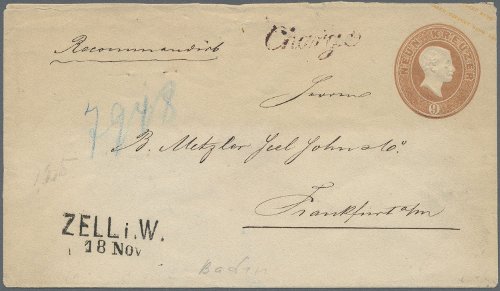 Recommandirt
Chargé
NEUN KREUZER
9
Herren
7948
B. Metzler seel Sohn & Co.
Frankfurt a/m
ZELL i.W.
18 NOV
Baden